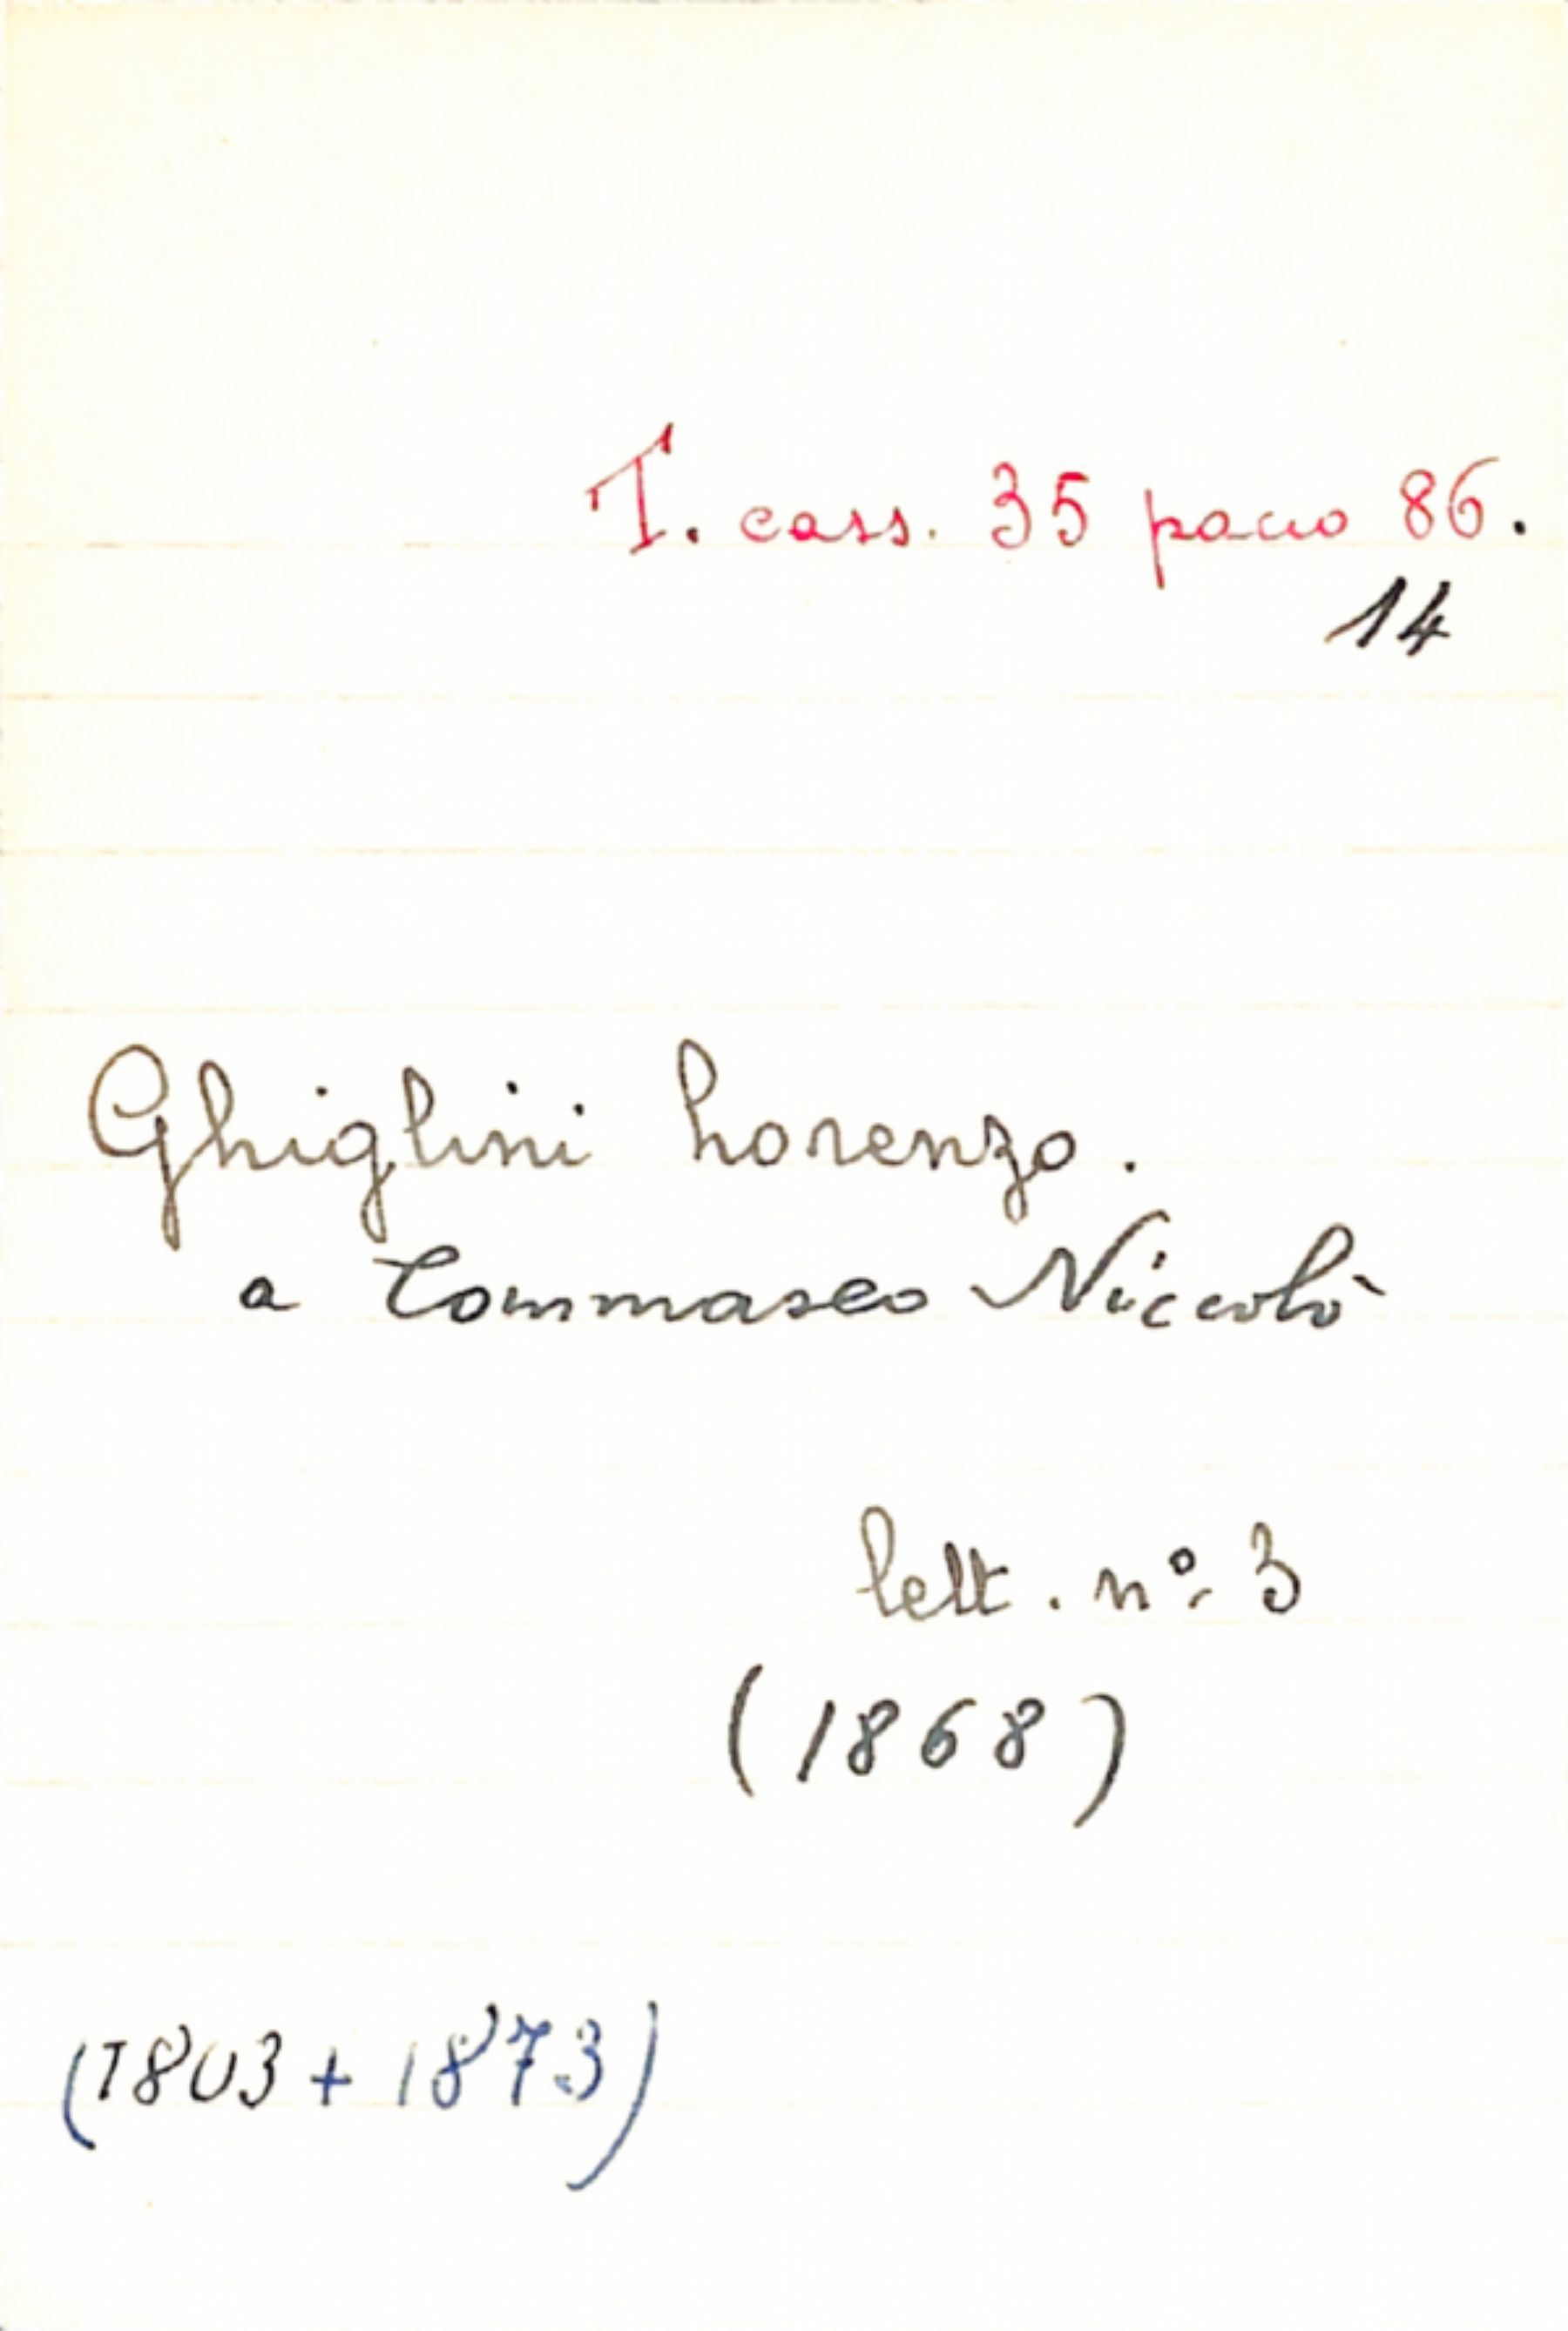 T. cass. 35 pacco 86.
14
Ghiglini Lorenzo.
a Tommaseo Niccolò
lett. nº 3
(1868)
(1803 + 1873)